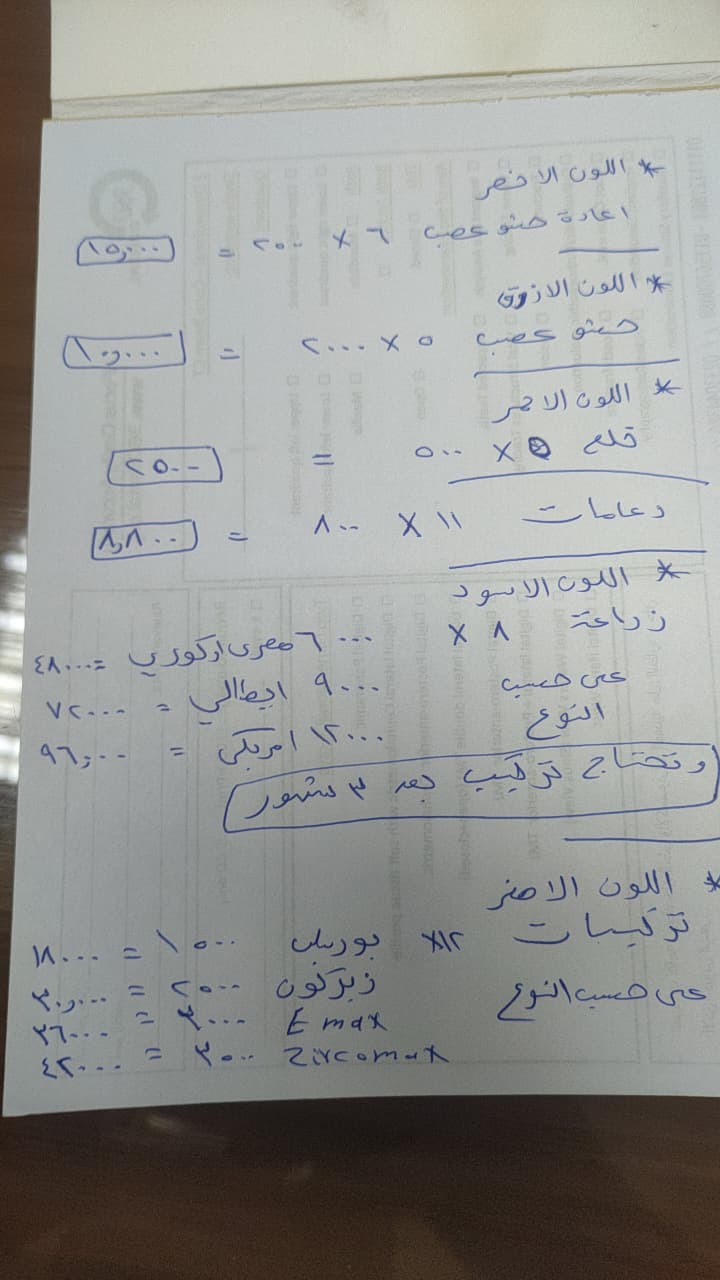 * اللون الاخضر
اعادة حشو عصب ٦ × ٢٥٠٠ = ١٥,٠٠٠
* اللون الازرق
حشو عصب ٥ × ٢٠٠٠ = ١٠,٠٠٠
* اللون الاحمر
خلع ٥ × ٥٠٠ = ٢٥٠٠
دعامات ١١ × ٨٠٠ = ٨,٨٠٠
* اللون الاسود
زراعة ٨ × ٦٠٠٠ مصرى او كوري = ٤٨٠٠٠
على حسب ٩٠٠٠ ايطالي = ٧٢٠٠٠
النوع ١٢٠٠٠ امريكى = ٩٦,٠٠٠
وتحتاج تركيب بعد ٣ شهور
* اللون الاصفر
تركيبات ١٢× بورسلين ١٥٠٠ = ١٨٠٠٠
على حسب النوع زيركون ٢٥٠٠ = ٣٠,٠٠٠
E max ٣٠٠٠ = ٣٦٠٠٠
Zircomax ٣٥٠٠ = ٤٢٠٠٠